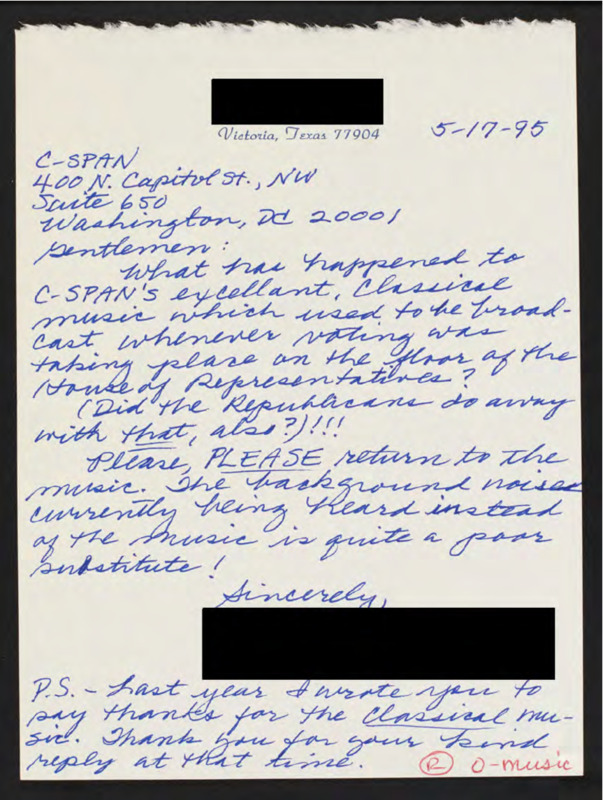 Victoria, Texas 77904
5-17-95
C-SPAN
400 N. Capitol St., NW
Suite 650
Washington, DC 20001
Gentlemen:
What has happened to
C-SPAN's excellant, Classical
music which used to be broad-
cast whenever voting was
taking place on the floor of the
House of Representatives?
(Did the Republicans do away
with that, also?)!!!
Please, PLEASE return to the
music. The background noises
currently being heard instead
of the music is quite a poor
substitute!
Sincerely,
P.S. - Last year I wrote you to
say thanks for the Classical mu-
sic. Thank you for your kind
reply at that time.
R O-music